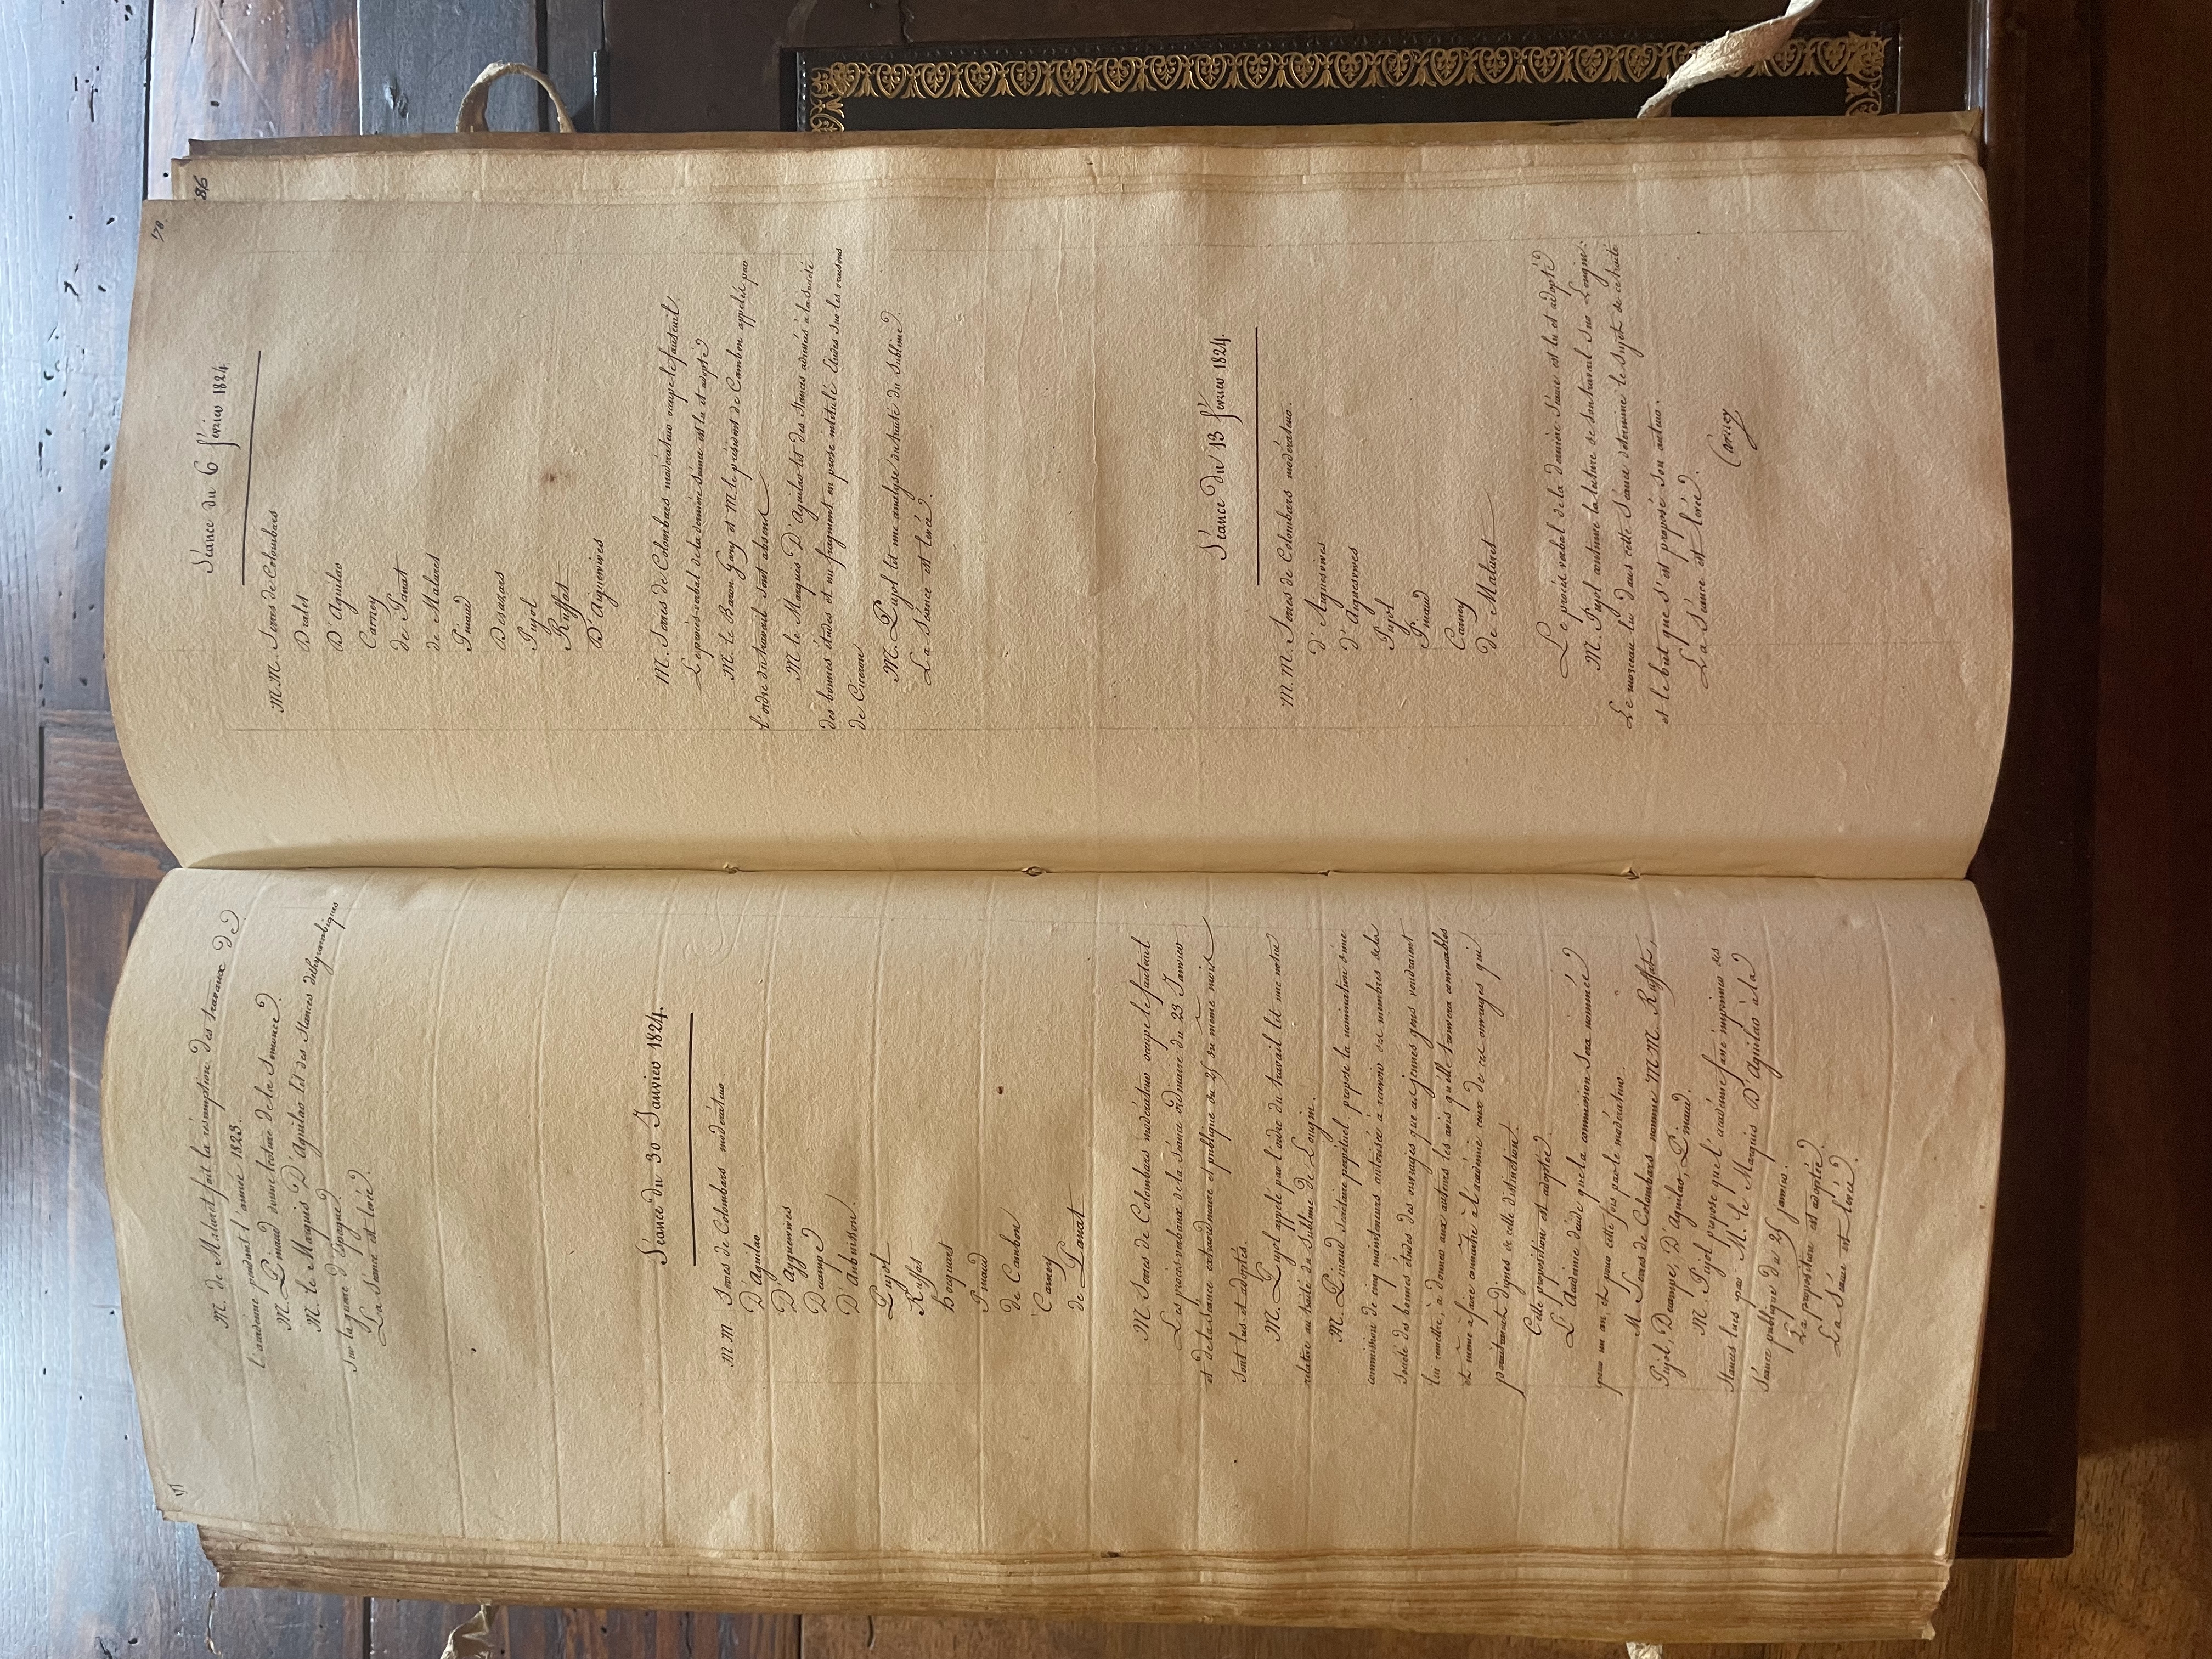 M. de Malaret fait la résomption des travaux de
l'académie pendant l'année 1823.
M. Pinaud donne lecture de la Semonce.
M. le Marquis D'Aguilar lit des Stances dithyrambiques
sur la guerre d'Espagne.
La Séance est levée.
Séance du 30 Janvier 1824.
M M. Serres de Colombars modérateur.
D'Aguilar
D'Ayguesvives
Decampe
D'Aubuisson.
Pujol
Ruffat
hocquart
Pinaud
de Cambon
Carney
de Panat
M. Serres de Colombars modérateur occupe le fauteuil
Les procès verbaux de la séance ordinaire du 23 Janvier
et de la Séance extraordinaire et publique du 25 du même mois
sont lus et adoptés.
M. Pujol appelé par l'ordre du travail lit une notice
relative au traité du Sublime de Longin.
M. Pinaud Secrétaire perpétuel propose la nomination d'une
commission de cinq mainteneurs autorisée à recevoir des membres de la
Société des bonnes études des ouvrages que ces jeunes gens voudraient
lui remettre, à donner aux auteurs les avis qu'elle trouvera convenables
et même à faire connaitre à l'académie ceux de ces ouvrages qui
pourraient dignes de cette distinction.
Cette proposition est adoptée.
L'Académie décide que la commission sera nommée
pour un an, et pour cette fois par le modérateur.
M. Serres de Colombars nomme M M. Ruffat,
Pujol, Decampe, D'Aguilar, Pinaud.
M. Pujol propose que l'académie fasse imprimer les
Stances lues par M. le Marquis D'Aguilar à la
Séance publique du 25 janvier.
La proposition est adoptée.
La Séance est levée.
178
186
Séance du 6 février 1824.
M M. Serres de Colombars
Dralet
D'Aguilar
Carney
de Panat
de Malaret
Pinaud
Desazars
Pujol
Ruffat
D'Aiguesvives
M. Serres de Colombars modérateur occupe le fauteuil.
Le procès-verbal de la dernière séance est lu et adopté
M. le Baron Gary et M. le président de Cambon appelés par
l'ordre du travail sont absens
M. le Marquis D'Aguilar lit des stances adressées à la Société
des bonnes études et un fragment en prose intitulé Etudes sur les oraisons
de Ciceron
M. Pujol lit une analyse du traité du Sublime.
La Séance est levée.
Séance du 13 février 1824.
M. M. Serres de Colombars modérateur.
d'Aiguesvives
d'Aiguesvives
Pujol
Pinaud
Carney
de Malaret
Le procès verbal de la dernière séance est lu et adopté
M. Pujol continue la lecture de son travail sur Longin.
Le morceau lu dans cette séance détermine le sujet de ce traité
et le but que s'est proposé son auteur.
La Séance est levée.
Carney